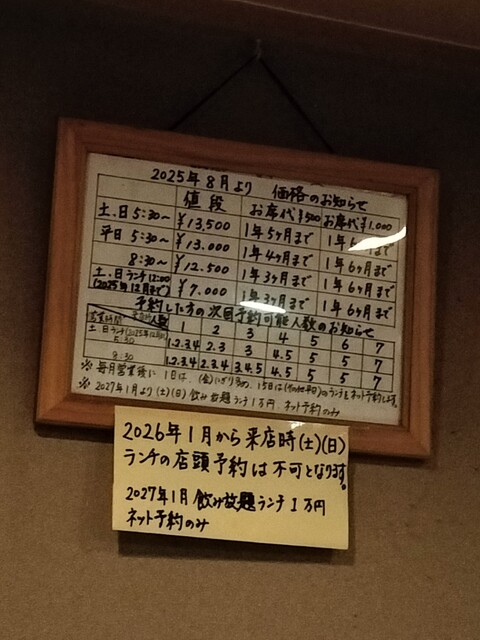 2025年8月より 価格のお知らせ
値段 お席代¥500 お席代¥1,000
土.日 5:30〜 ¥13,500 1年5ヶ月まで 1年
平日 5:30〜 ¥13.000 1年4ヶ月まで 1年6ヶ月まで
8:30〜 ¥12.500 1年3ヶ月まで 1年6ヶ月まで
土.日ランチ12:00 (2025年12月まで) ¥7.000 1年3ヶ月まで 1年6ヶ月まで
予約した方の次回予約可能人数のお知らせ
営業時間 来店人数 1 2 3 4 5 6 7
土日ランチ(2025年12月まで)
5:30 1.2.3.4 2.3 3 4.5 5 5 7
8:30 1.2.3.4 2.3.4 3.4.5 4.5 5 5 7
※毎月営業後に1日は、(金) 15日は のランチをネット予約します。
※2027年1月より(土)(日)飲み放題ランチ1万円.ネット予約のみ
2026年1月から来店時(土)(日)
ランチの店頭予約は不可となります。
2027年1月 飲み放題ランチ1万円
ネット予約のみ